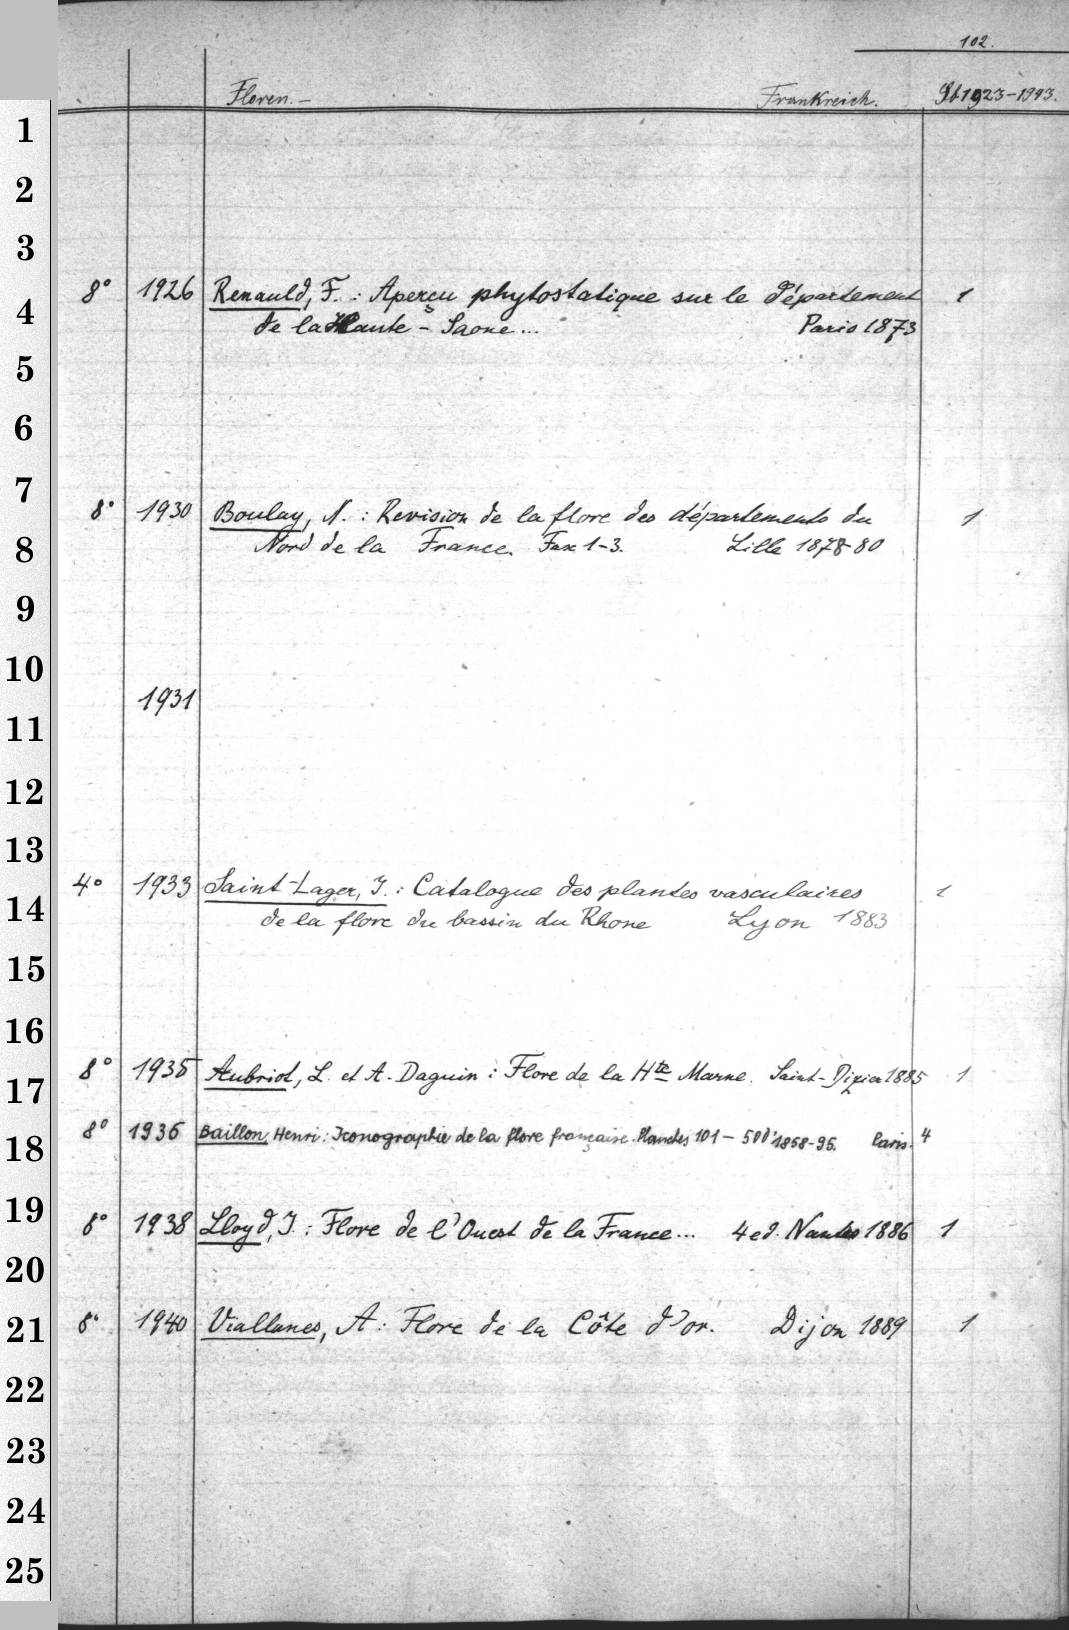 102.
Floren.— Frankreich. Pb1923-1943.
1
2
3
8° 1926 Renauld, F. : Aperçu phytostatique sur le Département 1
4
de la Haute-Saone... Paris 1873
5
6
7
8° 1930 Boulay, N. : Revision de la flore des départements du 1
8
Nord de la France. Fax 1-3. Lille 1878-80
9
10
1931
11
12
13
4° 1933 Saint-Lager, J. : Catalogue des plantes vasculaires 1
14
de la flore du bassin du Rhone Lyon 1883
15
16
8° 1935 Aubriot, L. et A. Daguin : Flore de la Hte Marne. Saint-Dizier 1885 1
17
8° 1936 Baillon, Henri: Iconographie de la flore française. Planches 101-500. 1858-95. Paris. 4
18
19
8° 1938 Lloyd, J. : Flore de l'Ouest de la France... 4 ed. Nantes 1886 1
20
21
8° 1940 Viallanes, A : Flore de la Côte d'or. Dijon 1889 1
22
23
24
25